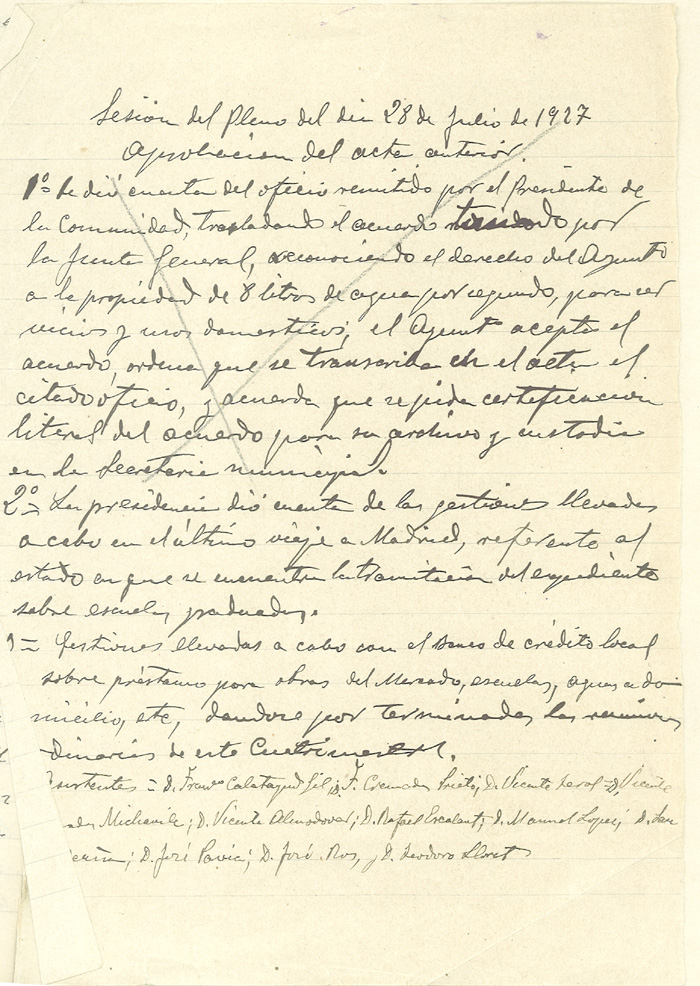 Sesión del Pleno del dia 28 de Julio de 1927
Aprobacion del acta anterior.
1º = Se dió cuenta del oficio remitido por el Presidente de
la Comunidad, trasladando el acuerdo tomado por
la Junta General, reconociendo el derecho del Ayunto
a la propiedad de 8 litros de agua por segundo, para ser
vicios y usos domesticos; el Ayunto acepta el
acuerdo, ordena que se transcriba en el acta el
citado oficio, y acuerda que se pida certificación
literal del acuerdo para su archivo y custodia
en la Secretaria municipal.
2º = La presidencia dió cuenta de las gestiones llevadas
a cabo en el último viaje a Madrid, referente al
estado en que se encuentra la tramitacion del expediente
sobre escuelas graduadas.
= Gestiones llevadas a cabo con el Banco de crédito local
sobre préstamo para obras del Mercado, escuelas, aguas a do
micilio, etc, dandose por terminadas las reunions
dinarias de este Cuatrimestre.
sistentes = D. Franco Calatayud Gil; D. F. Cremades Prieto; D. Vicente Peral = D. Vicente
Michavila; D. Vicente Almodovar; D. Rafael Escalant; D. Manuel Lopez; D.
D. José Pavia; D. José Ros, y D. Teodoro Lloret